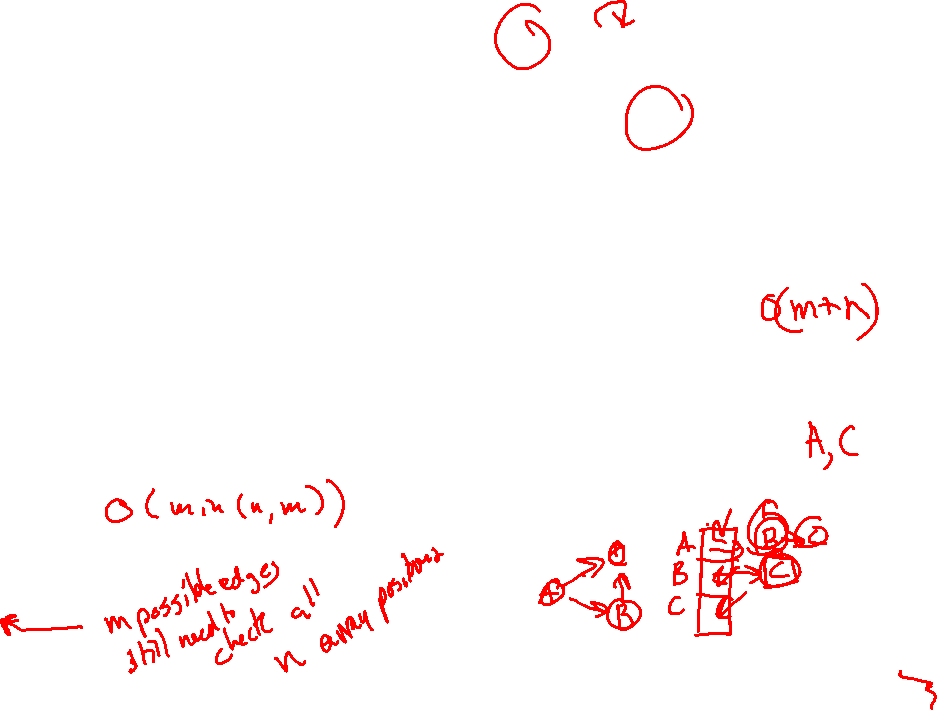 O(m+n)
A, C
O(min(n,m))
m possible edges
still need to
check all
n array positions
A
B
C
B
C
A
B